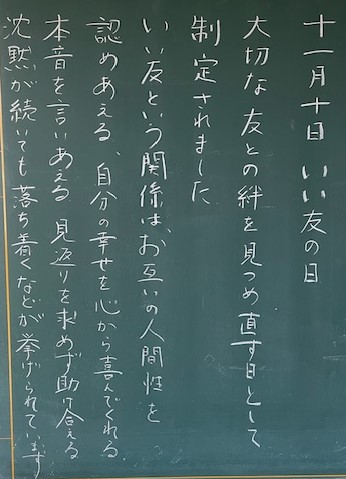 十一月十日 いい友の日
大切な友との絆を見つめ直す日として
制定されました
いい友という関係は、お互いの人間性を
認めあえる、自分の幸せを心から喜んでくれる、
本音を言いあえる 見返りを求めず助け合える
沈黙が続いても落ち着くなどが挙げられています